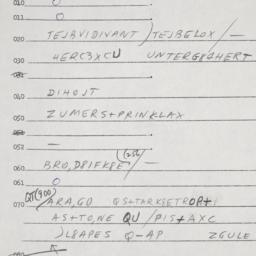 010 O
011 O
020 TEJBVIDIVANT ) TEJBELOX / —
HERC3XCU UNTERG8CHERT
030
040 DIHOJT
ZUMERS+PRINKLAX
050 —
052
060 BRO,D8IFK8E (256) / —
061 O
QT(900)
070 ARA,GO QS+TARKSETROP+I
AS+TO,NE QU / PIS+AXC
) L8APES Q-AP ZGULE
080